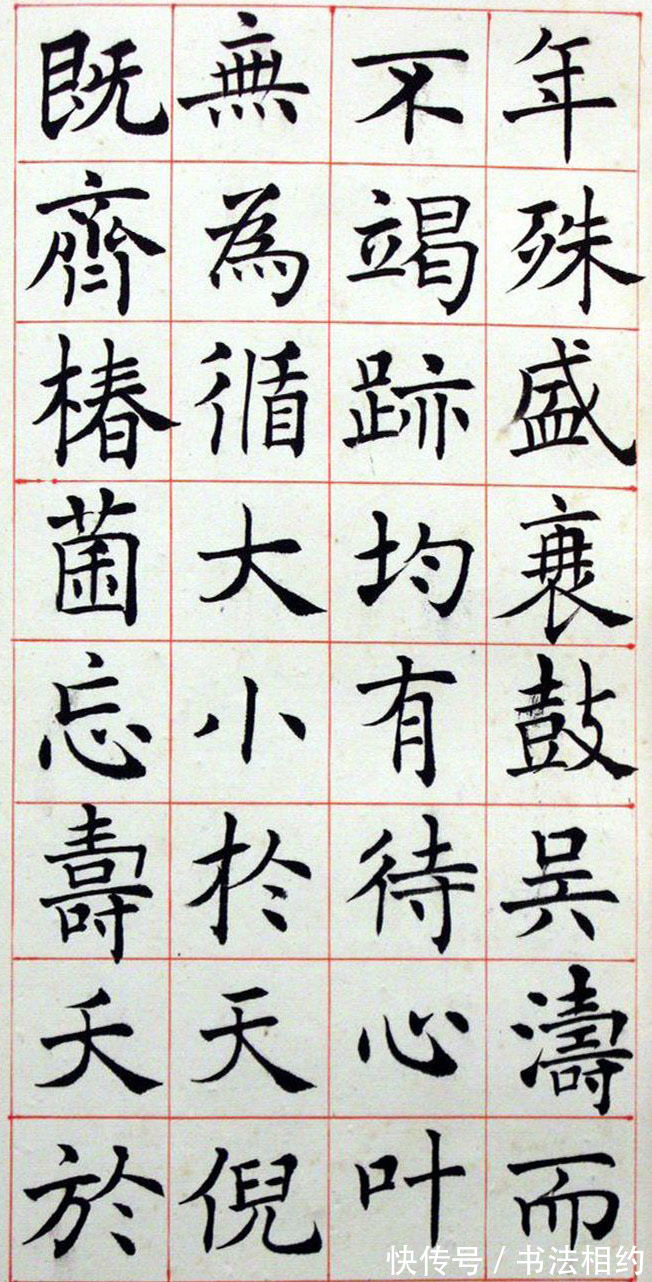 年殊盛衰鼓吴濤而
不竭跡均有待心叶
無為循大小於天倪
既齊椿菌忘壽夭於
快传号 / 书法相约